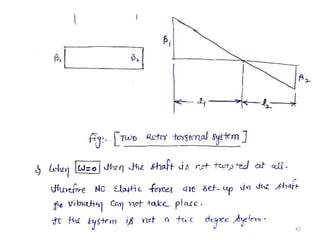 β₁
β₁ β₂
β₂
l₁ l₂
fig:- [Two Rotor torsional system]
↳ when ω=0 then the shaft is not twisted at all.
therefore NO Elastic forces are set-up in the shaft
vibrating can not take place.
so the system is not a two degree system.
42